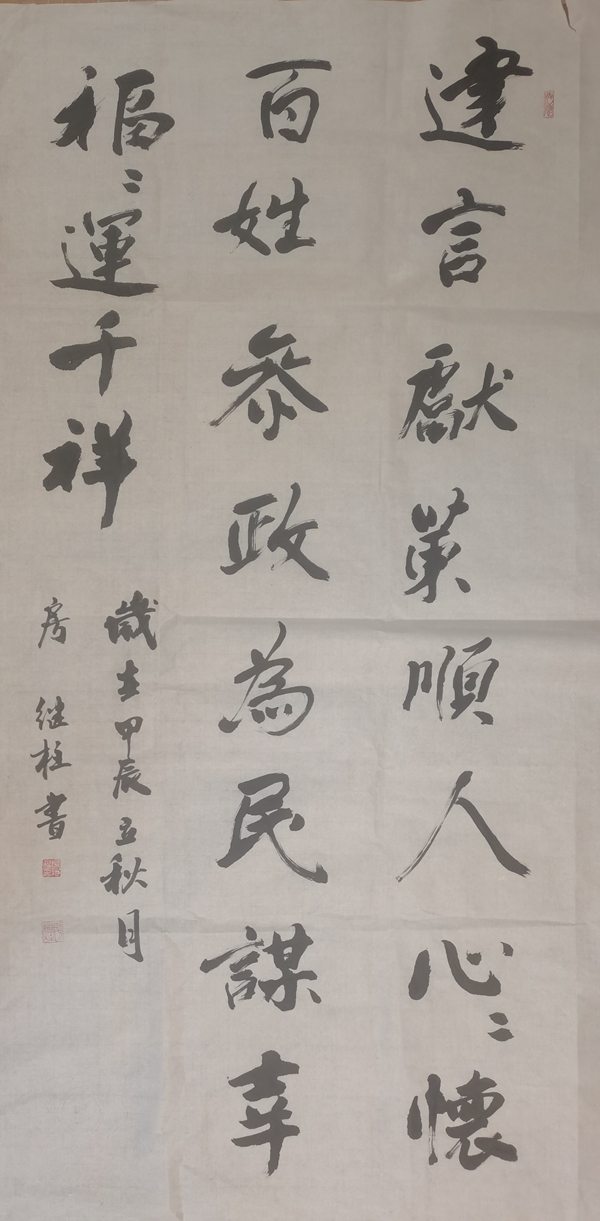 建言獻策順人心〻懷
百姓參政為民謀幸
福〻運千祥
歲在甲辰立秋月
房继柱書